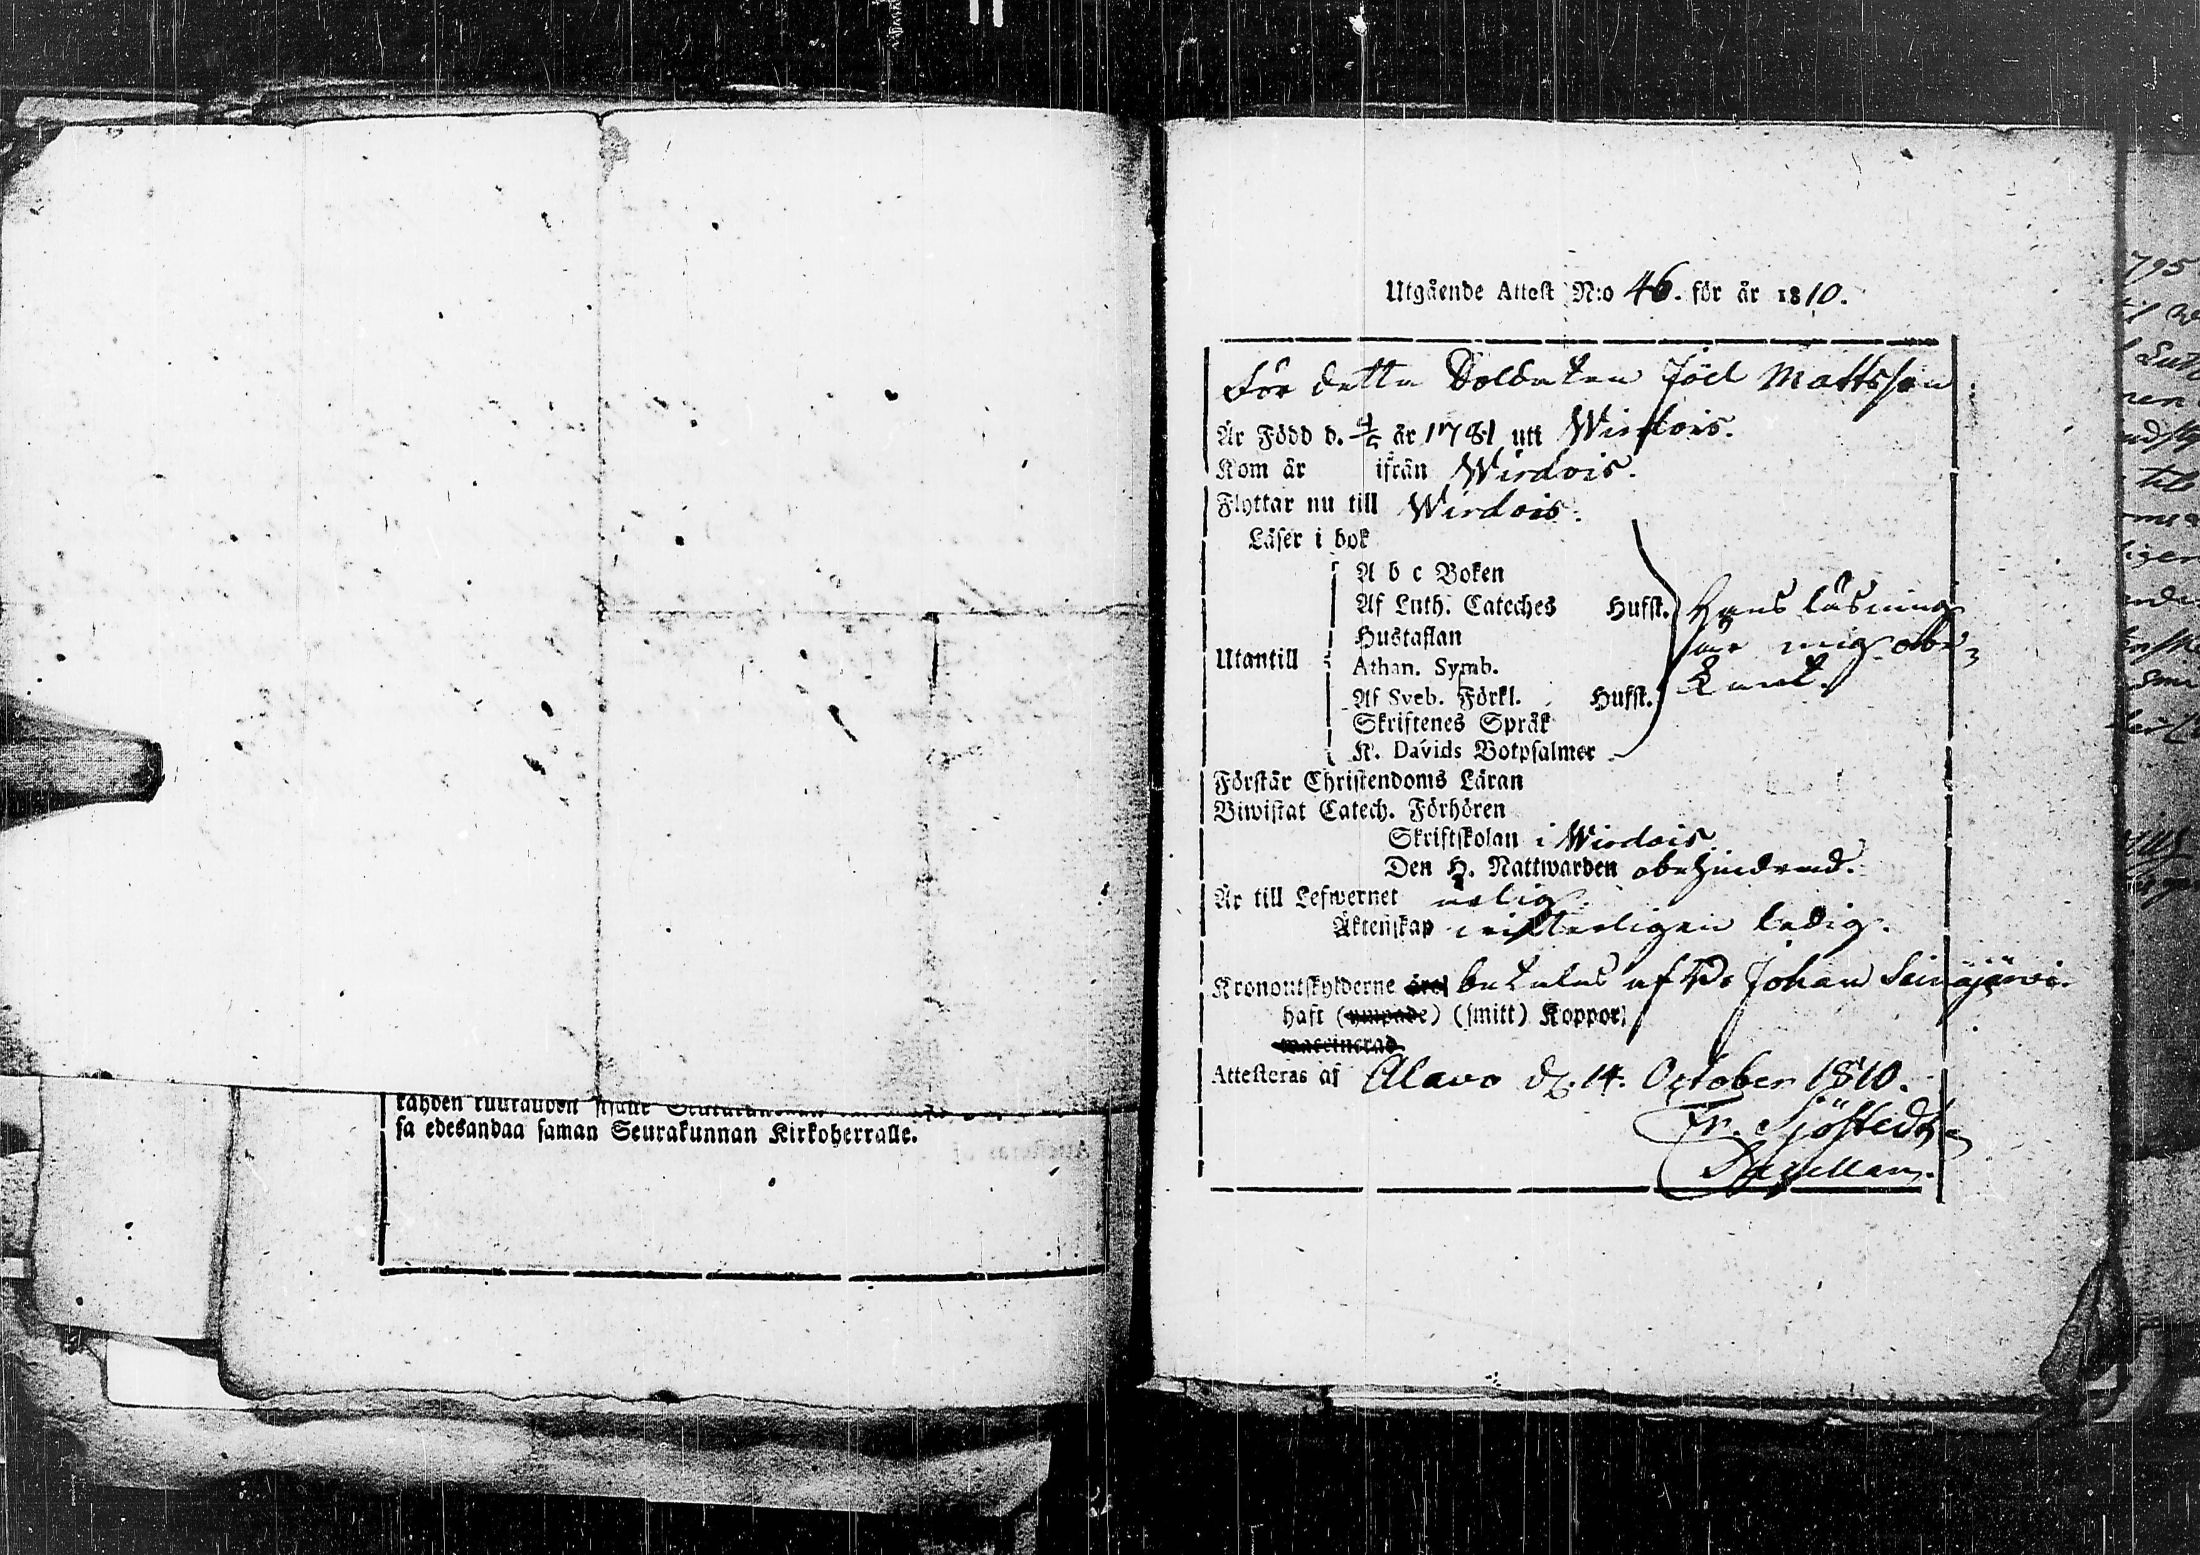 kahden kuukauden sisälle Seurakunnan
sa edesandaa saman Seurakunnan Kirkoherralle.
Utgående Attest N:o 46. för år 1810.
För detta Soldaten Joel Mattsson
Är Född d. 4/5 år 1781 uti Wirdois.
Kom år ifrån Wirdois.
Flyttar nu till Wirdois.
Läser i bok
A b c Boken
Af Luth. Cateches Hufst.
Hustaflan
Utantill
Athan. Symb.
Af Sveb. Förkl. Hufst.
Skriftenes Språk
K. Davids Botpsalmer
Hans läsning
är mig obe-
kant.
Förstår Christendoms Läran
Biwistat Catech. Förhören
Skriftskolan i Wirdois
Den H. Nattwarden obehindrad.
Är till Lefwernet ärlig.
Äktenskap ledig.
Kronoutskylderne äro betalas af Johan Seinäjärwi.
haft (ympade) (smitt) Koppor,
waccinerad
Attesteras af Alavo d. 14. October 1810.
Fr. Sjöstedt
Capellan.
795